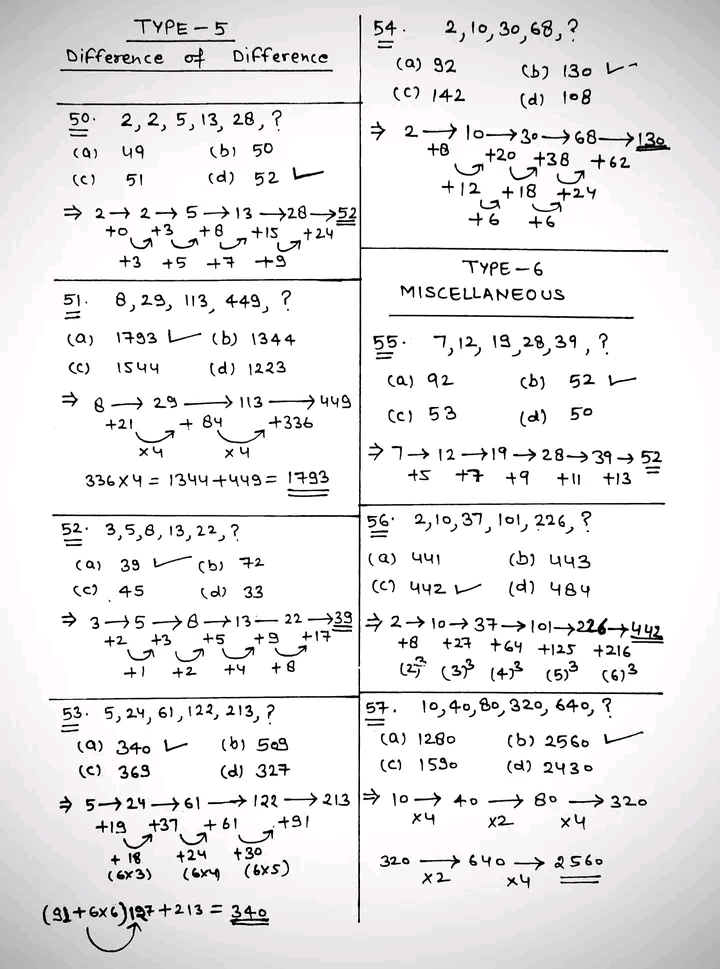 TYPE-5
Difference of Difference
50. 2, 2, 5, 13, 28, ?
(a) 49 (b) 50
(c) 51 (d) 52 ✓
⇒ 2 → 2 → 5 → 13 → 28 → 52
+0 +3 +8 +15 +24
+3 +5 +7 +9
51. 8, 29, 113, 449, ?
(a) 1793 ✓ (b) 1344
(c) 1544 (d) 1223
⇒ 8 → 29 → 113 → 449
+21 +84 +336
×4 ×4
336×4 = 1344+449 = 1793
52. 3, 5, 8, 13, 22, ?
(a) 39 ✓ (b) 72
(c) 45 (d) 33
⇒ 3 → 5 → 8 → 13 — 22 → 39
+2 +3 +5 +9 +17
+1 +2 +4 +8
53. 5, 24, 61, 122, 213, ?
(a) 340 ✓ (b) 509
(c) 369 (d) 327
⇒ 5 → 24 → 61 → 122 → 213
+19 +37 +61 +91
+18 +24 +30
(6×3) (6×4) (6×5)
(91+6×6)127+213 = 340
54. 2, 10, 30, 68, ?
(a) 92 (b) 130 ✓
(c) 142 (d) 108
⇒ 2 → 10 → 30 → 68 → 130
+8 +20 +38 +62
+12 +18 +24
+6 +6
TYPE-6
MISCELLANEOUS
55. 7, 12, 19, 28, 39, ?
(a) 92 (b) 52 ✓
(c) 53 (d) 50
⇒ 7 → 12 → 19 → 28 → 39 → 52
+5 +7 +9 +11 +13
56. 2, 10, 37, 101, 226, ?
(a) 441 (b) 443
(c) 442 ✓ (d) 484
⇒ 2 → 10 → 37 → 101 → 226 → 442
+8 +27 +64 +125 +216
(2)³ (3)³ (4)³ (5)³ (6)³
57. 10, 40, 80, 320, 640, ?
(a) 1280 (b) 2560 ✓
(c) 1590 (d) 2430
⇒ 10 → 40 → 80 → 320
×4 ×2 ×4
320 → 640 → 2560
×2 ×4